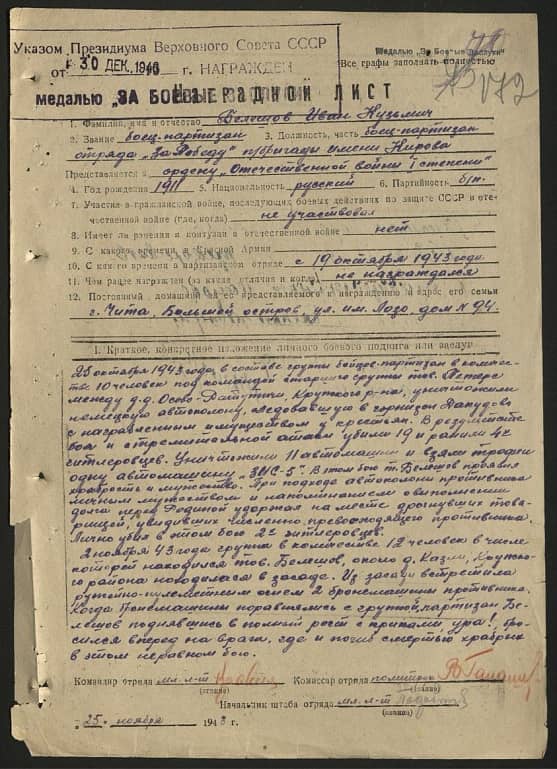 Указом Президиума Верховного Совета СССР
от 30 ДЕК. 1948 г. НАГРАЖДЕН
медалью „ЗА БОЕВЫЕ
Медалью „За Боевые Заслуги“
Все графы заполнять полностью
172
НАГРАДНОЙ ЛИСТ
1. Фамилия, имя и отчество Белешов Иван Кузьмич
2. Звание боец-партизан 3. Должность, часть боец-партизан
отряда „За Победу“ п/бригады имени Кирова
Представляется к ордену „Отечественной войны I степени“
4. Год рождения 1911 5. Национальность русский 6. Партийность б/п.
7. Участие в гражданской войне, последующих боевых действиях по защите СССР и оте-
чественной войне (где, когда) не участвовал
8. Имеет ли ранения и контузии в отечественной войне нет
9. С какого времени в Красной Армии
10. С какого времени в партизанском отряде с 19 октября 1943 года
11. Чем ранее награжден (за какие отличия и когда) не награждался
12. Постоянный домашний адрес представляемого к награждению и адрес его семьи
г. Чита, Большой остров, ул. им. Лазо, дом № 94.
I. Краткое, конкретное изложение личного боевого подвига или заслуг
25 октября 1943 года, в составе группы бойцов-партизан в количес-
тве 10 человек под командой старшего группы тов.
между д.д. Осово- Круглого р-на, уничтожили
немецкую автоколону, следовавшую в гарнизон
с награбленным имуществом у крестьян. В результате
боя и стремительной атаки убили 19 и ранили 42
гитлеровцев. Уничтожили 11 автомашин и взяли трофеи
одну автомашину „ЗИС-5“. В этом бою т. Белешов проявил
храбрость и мужество. При подходе автоколоны противника
личным мужеством и напоминанием о выполнении
долга перед Родиной удержал на месте дрогнувших това-
рищей, увидивших численно превосходящего противника.
Лично убил в этом бою 2х гитлеровцев.
2 ноября 43 года группа в количестве 12 человек в числе
которой находился тов. Белешов, около д. Казли, Кругло-
го района находилась в засаде. Из засады встретила
ружейно-пулеметным огнем 2 бронемашины противника.
Когда бронемашины поравнялись с группой, партизан Бе-
лешов поднявшись в полный рост с криками ура! бро-
сился вперед на врага, где и погиб смертью храбрых
в этом неравном бою.
Командир отряда мл. л-т Комиссар отряда политрук
(звание) (звание)
Начальник штаба отряда мл. л-т
(звание)
„25“ ноября 1943 г.